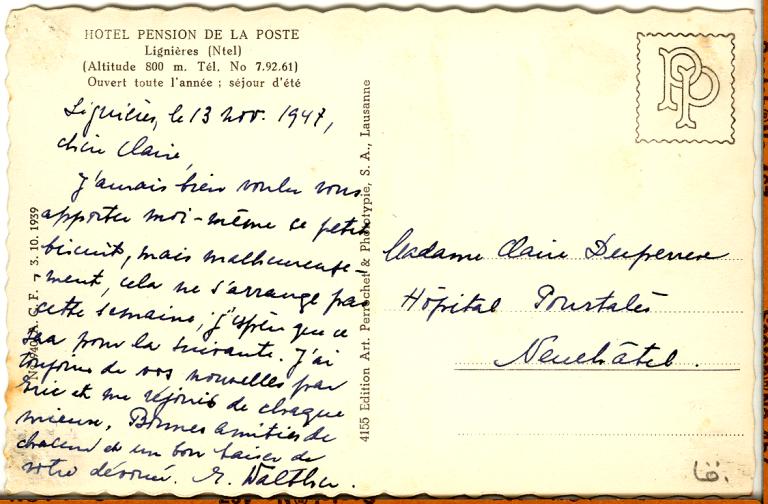 HOTEL PENSION DE LA POSTE
Lignières (Ntel)
(Altitude 800 m. Tél. No 7.92.61)
Ouvert toute l'année ; séjour d'été
Lignières, le 13 nov. 1947,
chère Claire,
J'aurais bien voulu vous
apporter moi-même ce petit
biscuit, mais malheureuse-
ment, cela ne s'arrange pas
cette semaine, j'espère que ce
sera pour la suivante. J'ai
toujours de vos nouvelles par
Eric et me réjouis de chaque
mieux. Bonnes amitiés de
chacun et un bon baiser de
votre dévouée. E. Walther.
A. C. F. 3. 10. 1939
4155 Edition Art. Perrochet & Phototypie, S. A., Lausanne
PP
Madame Claire Duperrex
Hôpital Pourtalès
Neuchâtel.